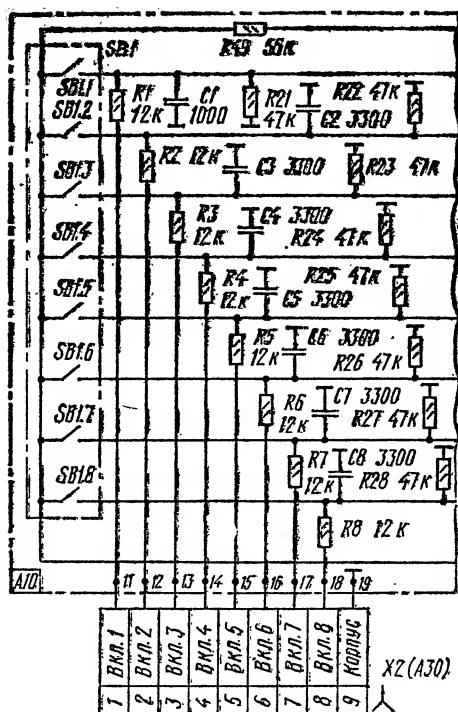 R49 56к
SB1
SB1.1 R1 12к C1 1000 R21 47к R22 47к
SB1.2 C2 3300
R2 12к C3 3300 R23 47к
SB1.3
R3 12к C4 3300 R24 47к
SB1.4
R4 12к C5 3300 R25 47к
SB1.5
R5 12к C6 3300 R26 47к
SB1.6
R6 12к C7 3300 R27 47к
SB1.7
R7 12к C8 3300 R28 47к
SB1.8
R8 12к
A10 11 12 13 14 15 16 17 18 19
Вкл.1 Вкл.2 Вкл.3 Вкл.4 Вкл.5 Вкл.6 Вкл.7 Вкл.8 Корпус
X2(А30)
1 2 3 4 5 6 7 8 9